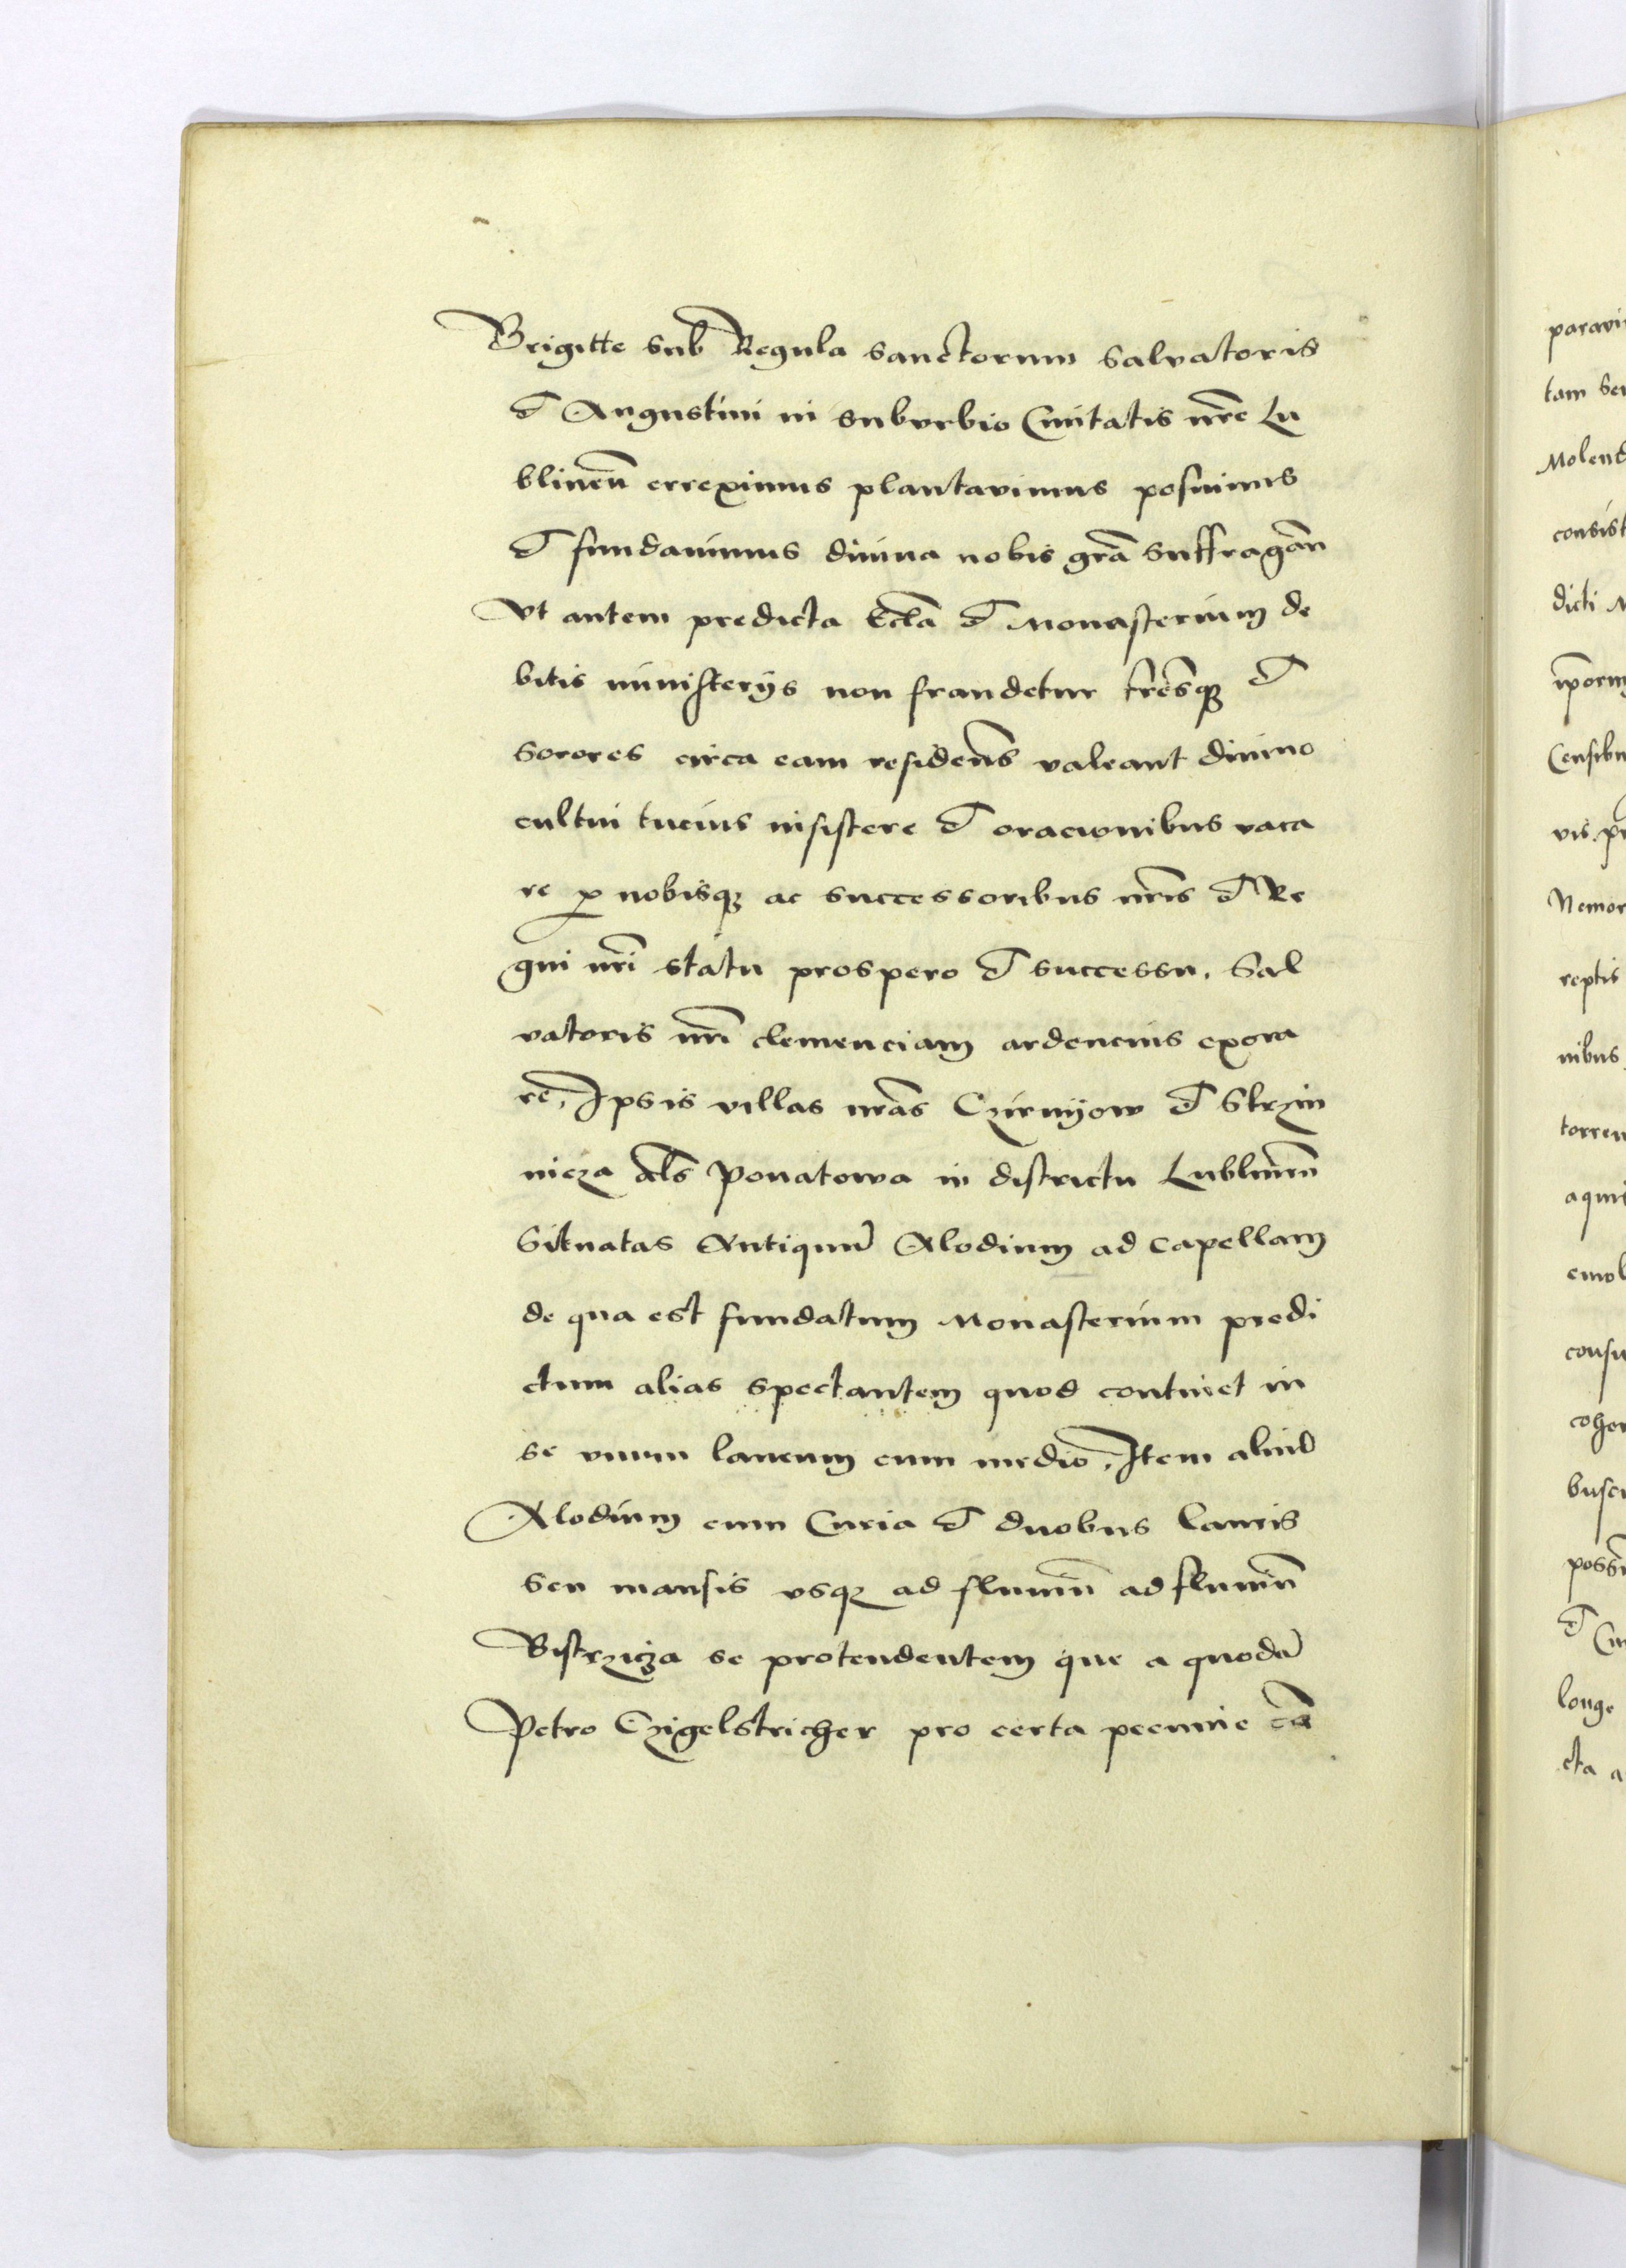 Brigitte sub Regula sanctorum Salvatoris
et Augustini in suburbio Civitatis nr̄e Lu
blineñ errexímus plantavimus posuimus
et fundavimus divina nobis grā suffragañ
Vt autem predicta Eccla et Monasterium de
bitis ministerÿs non fraudetur fr̄esqꝫ et
Sorores circa eam resideñs valeant divino
cultui tucius insistere et oracionibus vaca
re ꝓ nobisqꝫ ac successoribus nr̄is et Re
gni nr̄i statu prospero et successu. Sal
vatoris nr̄i clemenciam ardencius exora
re. Ipsis villas nr̄as Czirnÿow et Strzin
nicza als Ponatowa in districtu Lublineñ
Situatas Antiquū Alodium ad Capellam
de qua est fundatum Monasterium predi
ctum alias spectantem quod continet in
se vnum laneum cum medio, Item aliud
Alodium cum Curia et duobus laneis
seu mansis vsqꝫ ad flumeñ ad flumeñ
Bistrzicza se protendentem que a quodā
Petro Czigelstricher pro certa pecunie